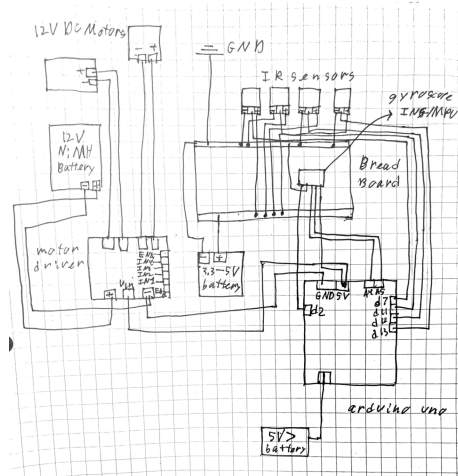 12V DC Motors
- +
GND
IR sensors
gyroscope
+
-
12V
NiMH
Battery
- +
Bread
Board
motor
driver
- +
3.3-5V
battery
GND 5V
A4 A5
d2
d7
d12
d13
+
-
arduino uno
5V>
battery